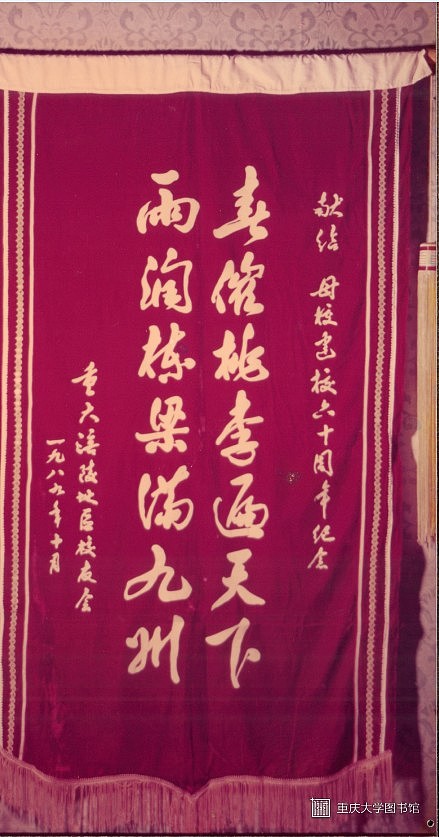 献给 母校建校六十周年纪念
春催桃李遍天下
雨润栋梁满九州
重大涪陵地区校友会
一九八九年十月
重庆大学图书馆